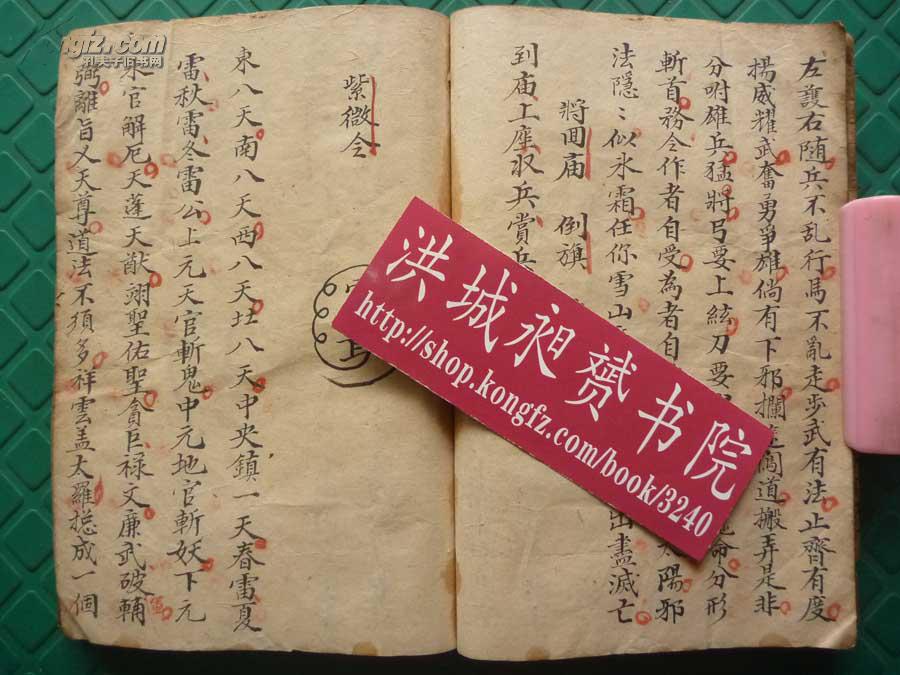 左護右随兵不乱行馬不亂走步武有法止齊有度
揚威耀武奮勇爭雄倘有下邪攔道搬弄是非
分咐雄兵猛將弓要上絃刀要命分形
斬首務令作者自受為者自陽邪
法隱〻似氷霜任你雪山出盡滅亡
將囬庙 倒旗
到庙上座収兵賞兵
紫微令
東八天南八天西八天北八天中央鎮一天春雷夏
雷秋雷冬雷公上元天官斬鬼中元地官斬妖下元
水官解厄天蓬天猷翊聖佑聖貪巨禄文廉武破輔
弼離旨乂天尊道法不須多祥雲盖太羅揔成一個
洪城昶赟书院
http://shop.kongfz.com/book/3240
kongfz.com
孔夫子旧书网